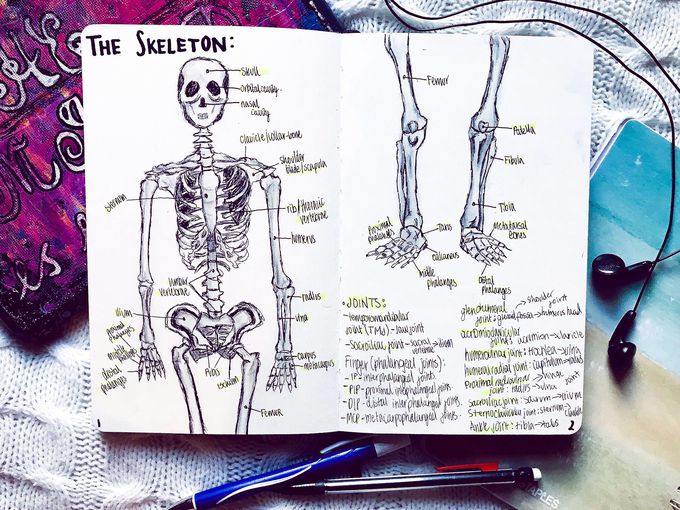 THE SKELETON:
skull
orbital cavity
nasal
cavity
clavicle/collar-bone
shoulder
blade/scapula
sternum
rib/thoracic
vertebrae
humerus
lumbar
vertebrae
radius
ulna
ilium
proximal
phalanges
middle
phalanges
distal
phalanges
carpus
metacarpus
Pubis
Femur
1
Femur
Patella
Fibula
Tibia
Proximal
phalanges
Tarsus
calcaneus
middle
phalanges
metatarsal
bones
distal
phalanges
JOINTS:
-temporomandibular
joint (TMJ) - jaw joint
- Sacroiliac joint → sacral → ilium
vertebrae
Finger (phalangeal joints):
- IP - interphalangeal joints
- PIP - proximal interphalangeal joints
- DIP - distal interphalangeal joints.
- MCP - metacarpophalangeal joints.
glenohumeral → shoulder
joint
joint: glenoid fossa → humerus head
acromioclavicular
joint: acromion → clavicle
humeroulnar joint: trochlea → ulna
humeroradial joint: capitulum → radius
Proximal radioulnar
joint: radius → ulna
Sacroiliac joint: sacrum → ilium
Sternoclavicular joint: sternum → clavicle
Ankle joint: tibia → talus
2
STAPLES